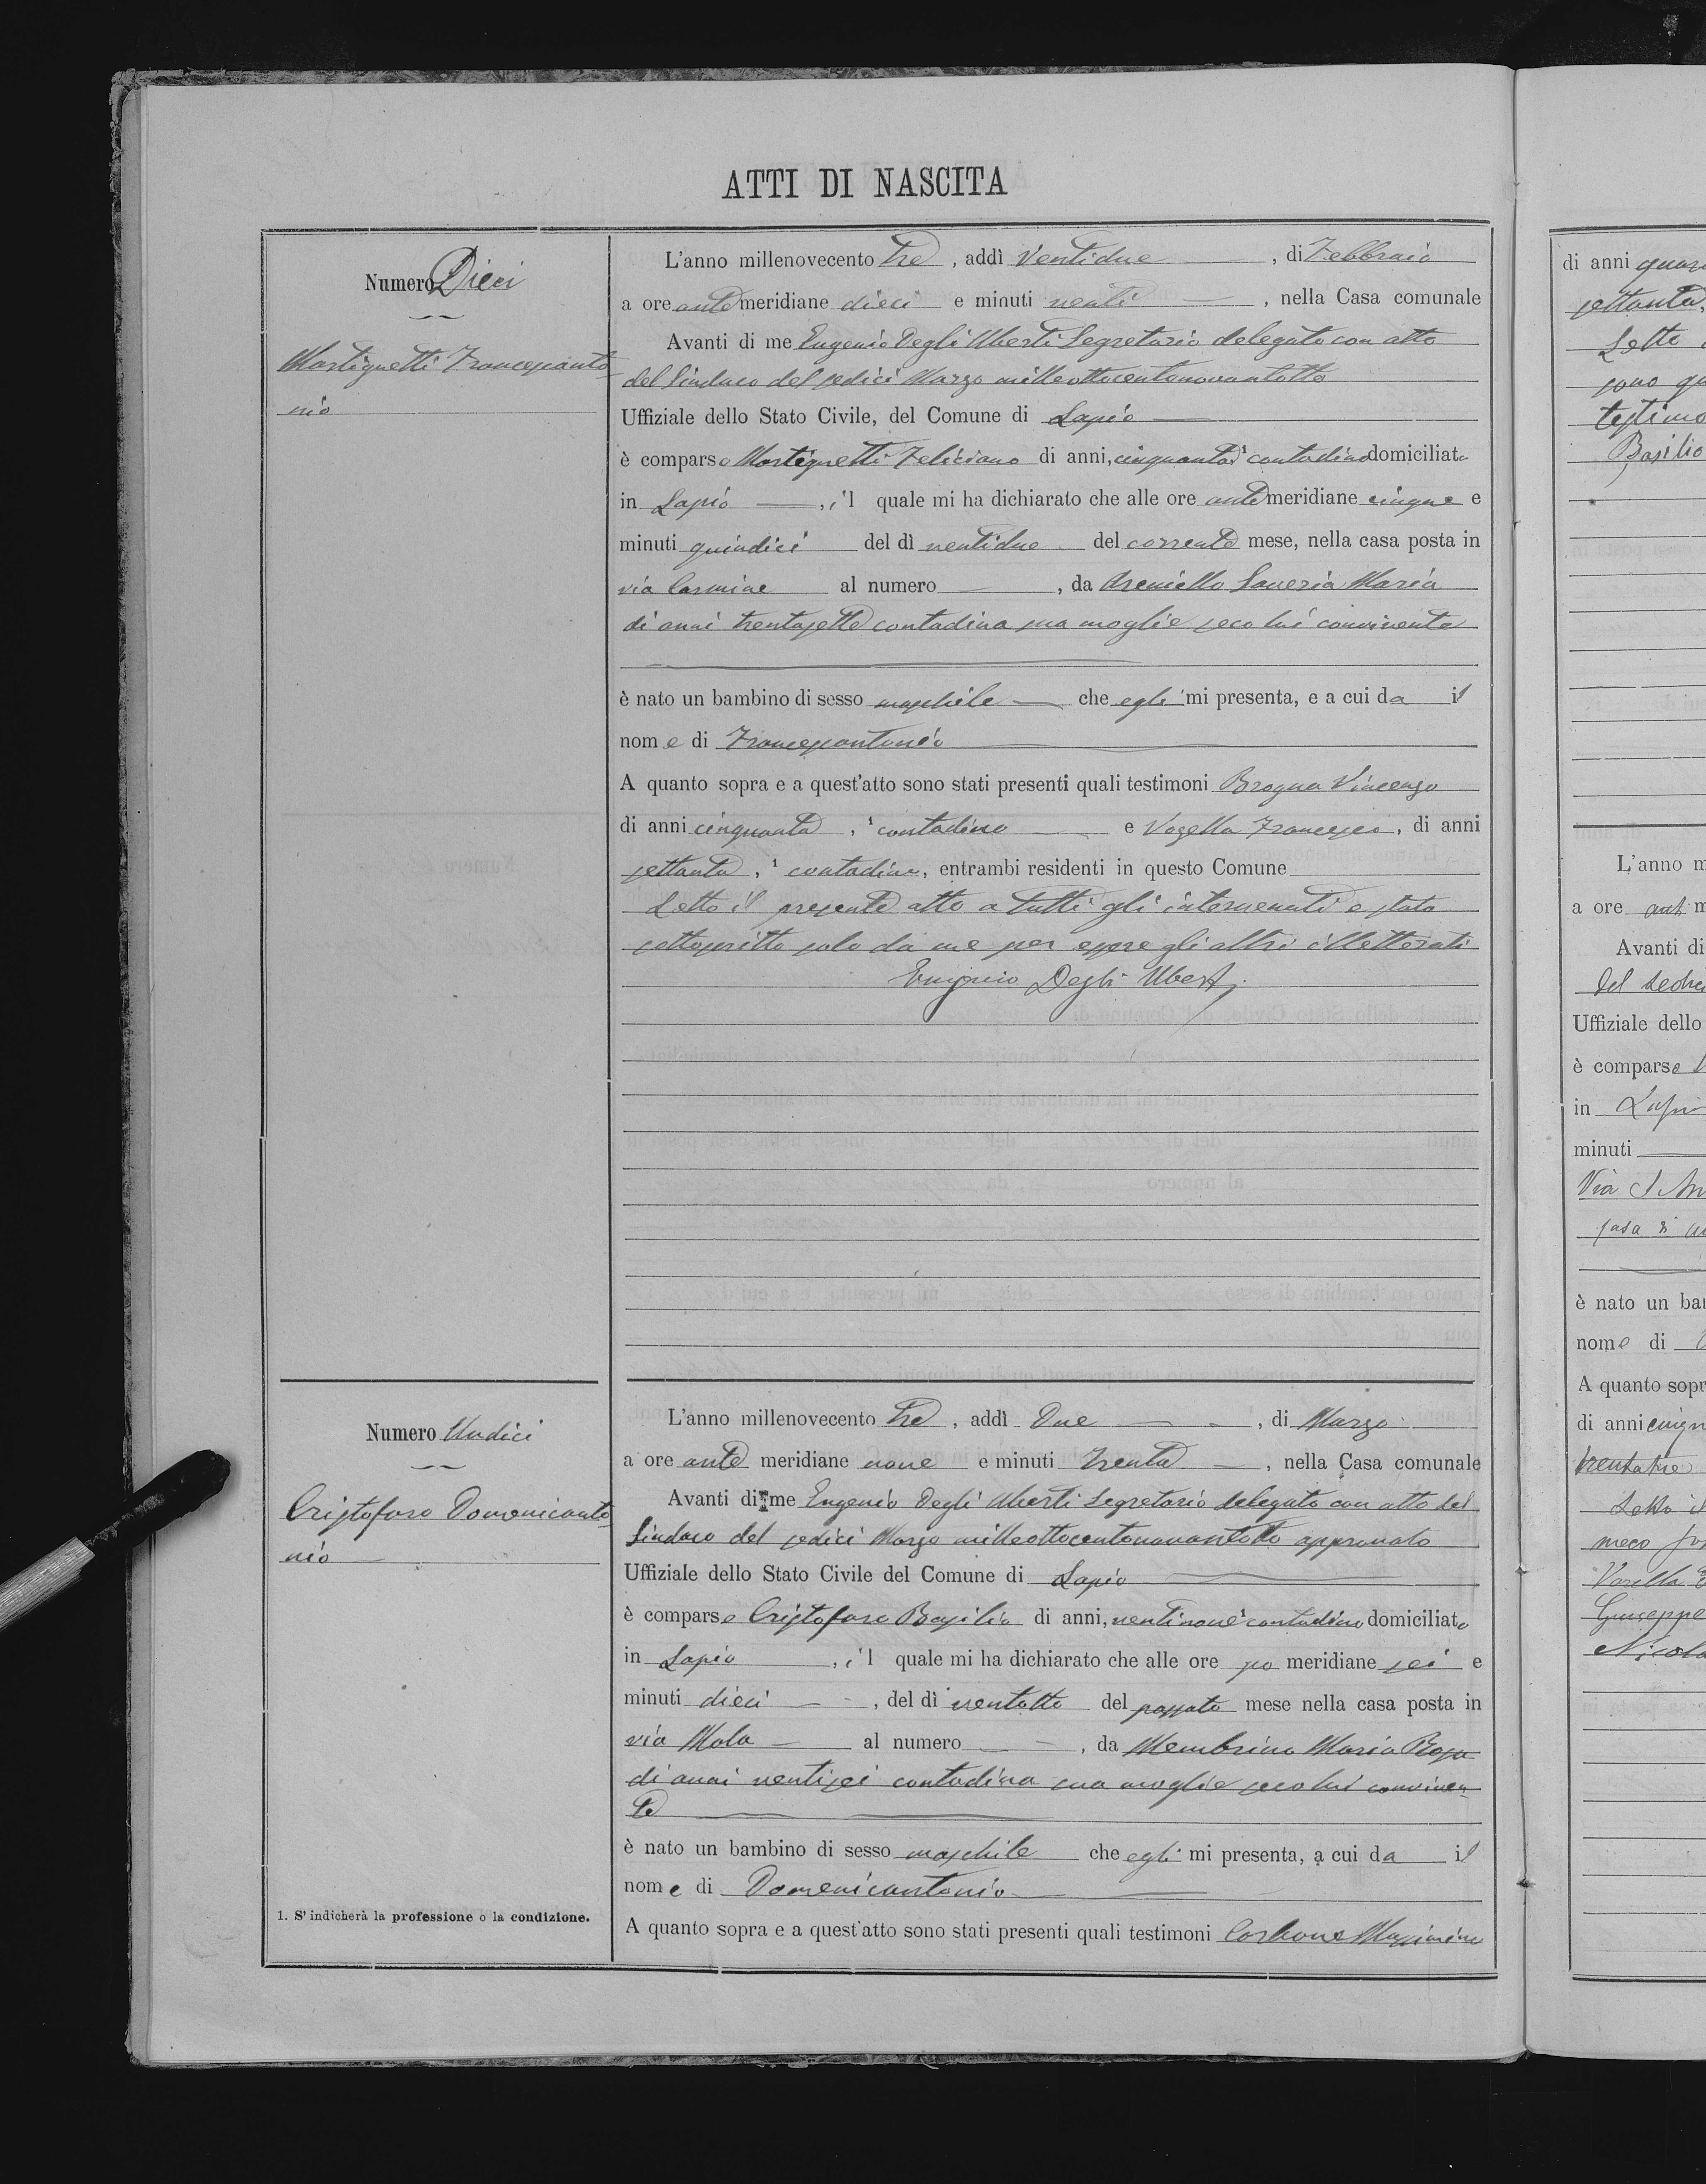 ATTI DI NASCITA
Numero Dieci
Martignetti Francescanto
nio
L'anno millenovecento tre, addì Ventidue, di Febbraio
a ore ante meridiane dieci e minuti venti, nella Casa comunale
Avanti di me Eugenio Degli Uberti Segretario delegato con atto
del Sindaco del sedici Marzo milleottocentonovantotto
Uffiziale dello Stato Civile, del Comune di Lapio
è comparso Martignetti Feliciano di anni, cinquanta ¹ contadino domiciliato
in Lapio, il quale mi ha dichiarato che alle ore ante meridiane cinque e
minuti quindici del dì ventidue del corrente mese, nella casa posta in
via Carmine al numero, da Areniello Saveria Maria
di anni trentasette contadina sua moglie seco lui convivente
è nato un bambino di sesso maschile che egli mi presenta, e a cui da il
nome di Francescantonio
A quanto sopra e a quest'atto sono stati presenti quali testimoni Brogna Vincenzo
di anni cinquanta, ¹ contadino e Vozella Francesco, di anni
settanta, ¹ contadino, entrambi residenti in questo Comune
Letto il presente atto a tutti gli intervenuti e stato
sottoscritto solo da me per essere gli altri illetterati
Eugenio Degli Uberti
Numero Undici
Cristofaro Domenicanto
nio
1. S'indicherà la professione o la condizione.
L'anno millenovecento tre, addì Due, di Marzo
a ore ante meridiane nove e minuti trenta, nella Casa comunale
Avanti di me Eugenio Degli Uberti Segretario delegato con atto del
Sindaco del sedici Marzo milleottocentonovantotto approvato
Uffiziale dello Stato Civile del Comune di Lapio
è comparso Cristofaro Basilio di anni, ventinove ¹ contadino domiciliato
in Lapio, il quale mi ha dichiarato che alle ore po meridiane sei e
minuti dieci, del dì ventotto del passato mese nella casa posta in
via Mola al numero, da Membrino Maria Rosa
di anni ventisei contadina sua moglie seco lui conviven-
te
è nato un bambino di sesso maschile che egli mi presenta, a cui da il
nome di Domenicantonio
A quanto sopra e a quest'atto sono stati presenti quali testimoni Carbone Massimino
di anni
settanta,
Letto
testimo
Basilio
L'anno m
a ore ant m
Avanti di
Uffiziale dello
è comparso
in Lapio
minuti
Via S An
è nato un bam
nome di
A quanto sopr
di anni cinqu
trentatre
Letto il
meco
Giuseppe
Nicola